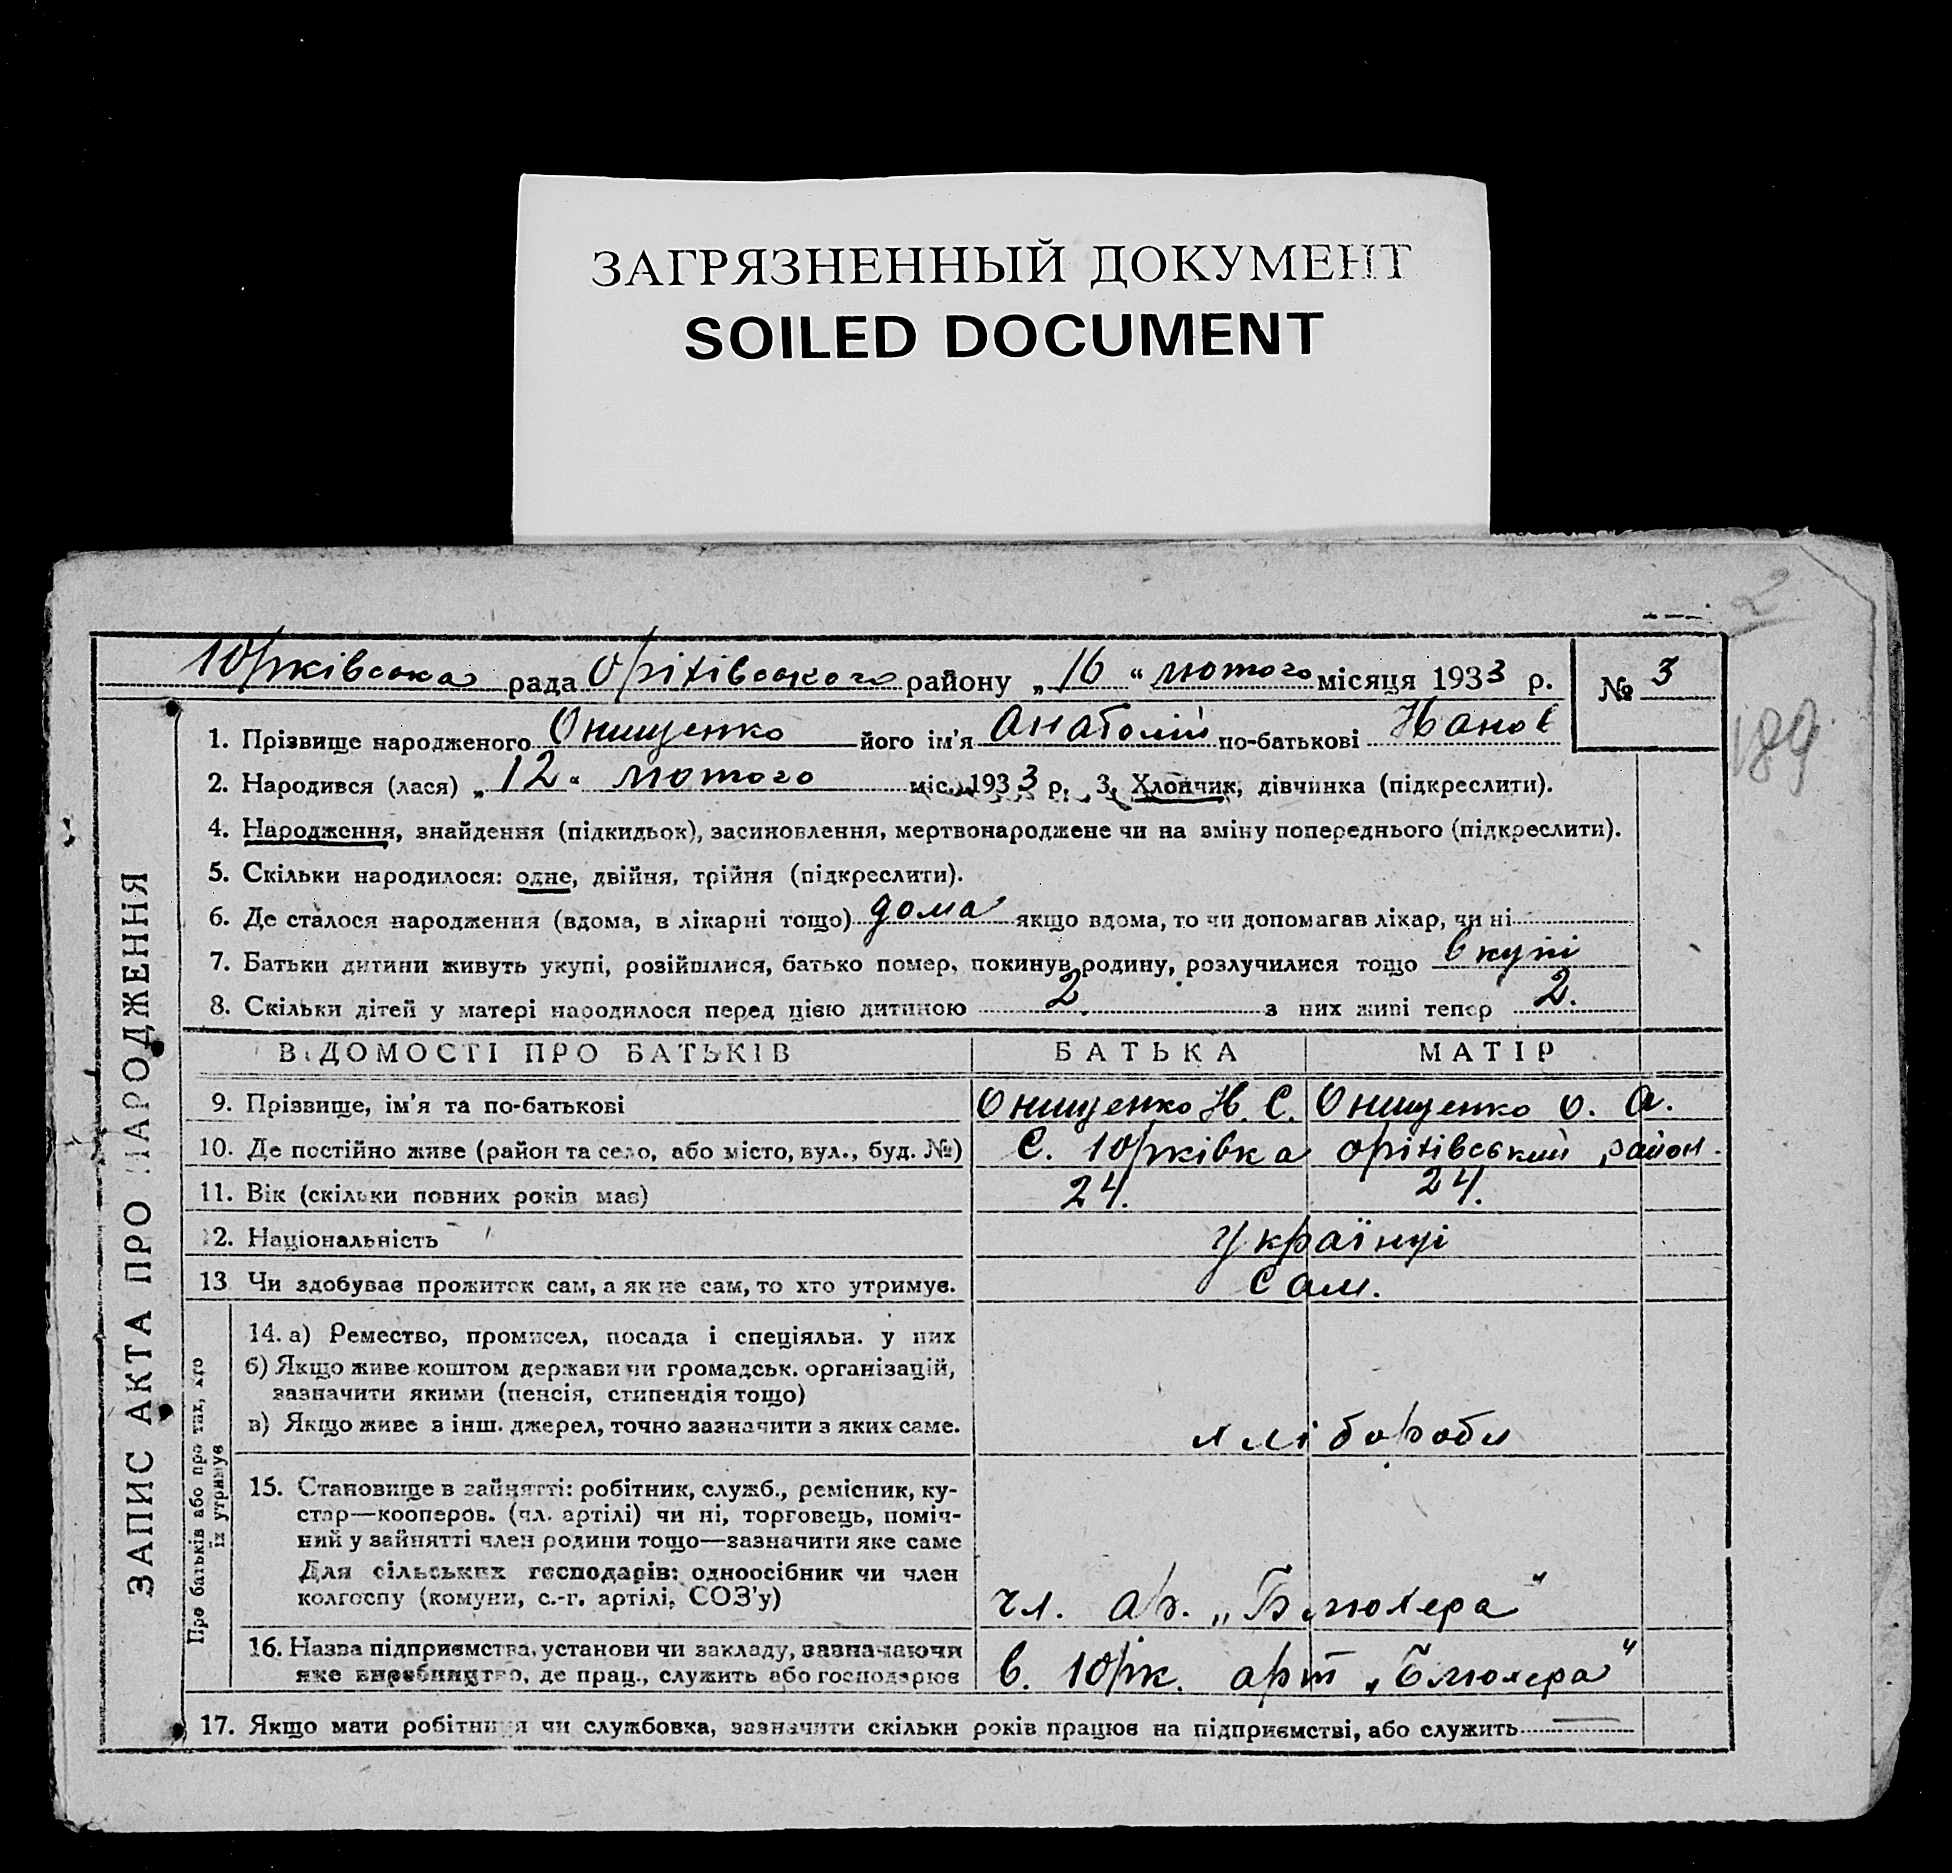 ЗАГРЯЗНЕННЫЙ ДОКУМЕНТ
SOILED DOCUMENT
2
189
ЗАПИС АКТА ПРО НАРОДЖЕННЯ
Юрківська рада Оріхівського району „16“ лютого місяця 1933 р. № 3
1. Прізвище народженого Онищенко його ім’я Анатолій по-батькові Іванов
2. Народився (лася) „12“ лютого міс. 1933 р. 3. Хлопчик, дівчинка (підкреслити).
4. Народження, знайдення (підкидьок), засиновлення, мертвонароджене чи на зміну попереднього (підкреслити).
5. Скільки народилося: одне, двійня, трійня (підкреслити).
6. Де сталося народження (вдома, в лікарні тощо) дома якщо вдома, то чи допомагав лікар, чи ні
7. Батьки дитини живуть укупі, розійшлися, батько помер, покинув родину, розлучилися тощо вкупі
8. Скільки дітей у матері народилося перед цією дитиною 2 з них живі тепер 2.
ВІДОМОСТІ ПРО БАТЬКІВ БАТЬКА МАТІР
9. Прізвище, ім’я та по-батькові Онищенко И. С. Онищенко О. А.
10. Де постійно живе (район та село, або місто, вул., буд. №) С. Юрківка Оріхівський район.
11. Вік (скільки повних років має) 24. 24.
12. Національність Українці
13 Чи здобуває прожиток сам, а як не сам, то хто утримує. Сам.
Про батьків або про тих, хто
їх утримує
14. а) Ремество, промисел, посада і спеціяльн. у них
б) Якщо живе коштом держави чи громадськ. організацій,
зазначити якими (пенсія, стипендія тощо)
в) Якщо живе з інш. джерел, точно зазначити з яких саме. хлібороби
15. Становище в зайнятті: робітник, служб., ремісник, ку-
стар—кооперов. (чл. артілі) чи ні, торговець, поміч-
ний у зайнятті член родини тощо—зазначити яке саме
Для сільських господарів: одноосібник чи член
колгоспу (комуни, с.-г. артілі, СОЗ’у) чл. ар. „Блюхера“
16. Назва підприємства, установи чи закладу, зазначаючи
яке виробництво, де прац., служить або господарює в. Юрк. арт „Блюхера“
17. Якщо мати робітниця чи службовка, зазначити скільки років працює на підприємстві, або служить —